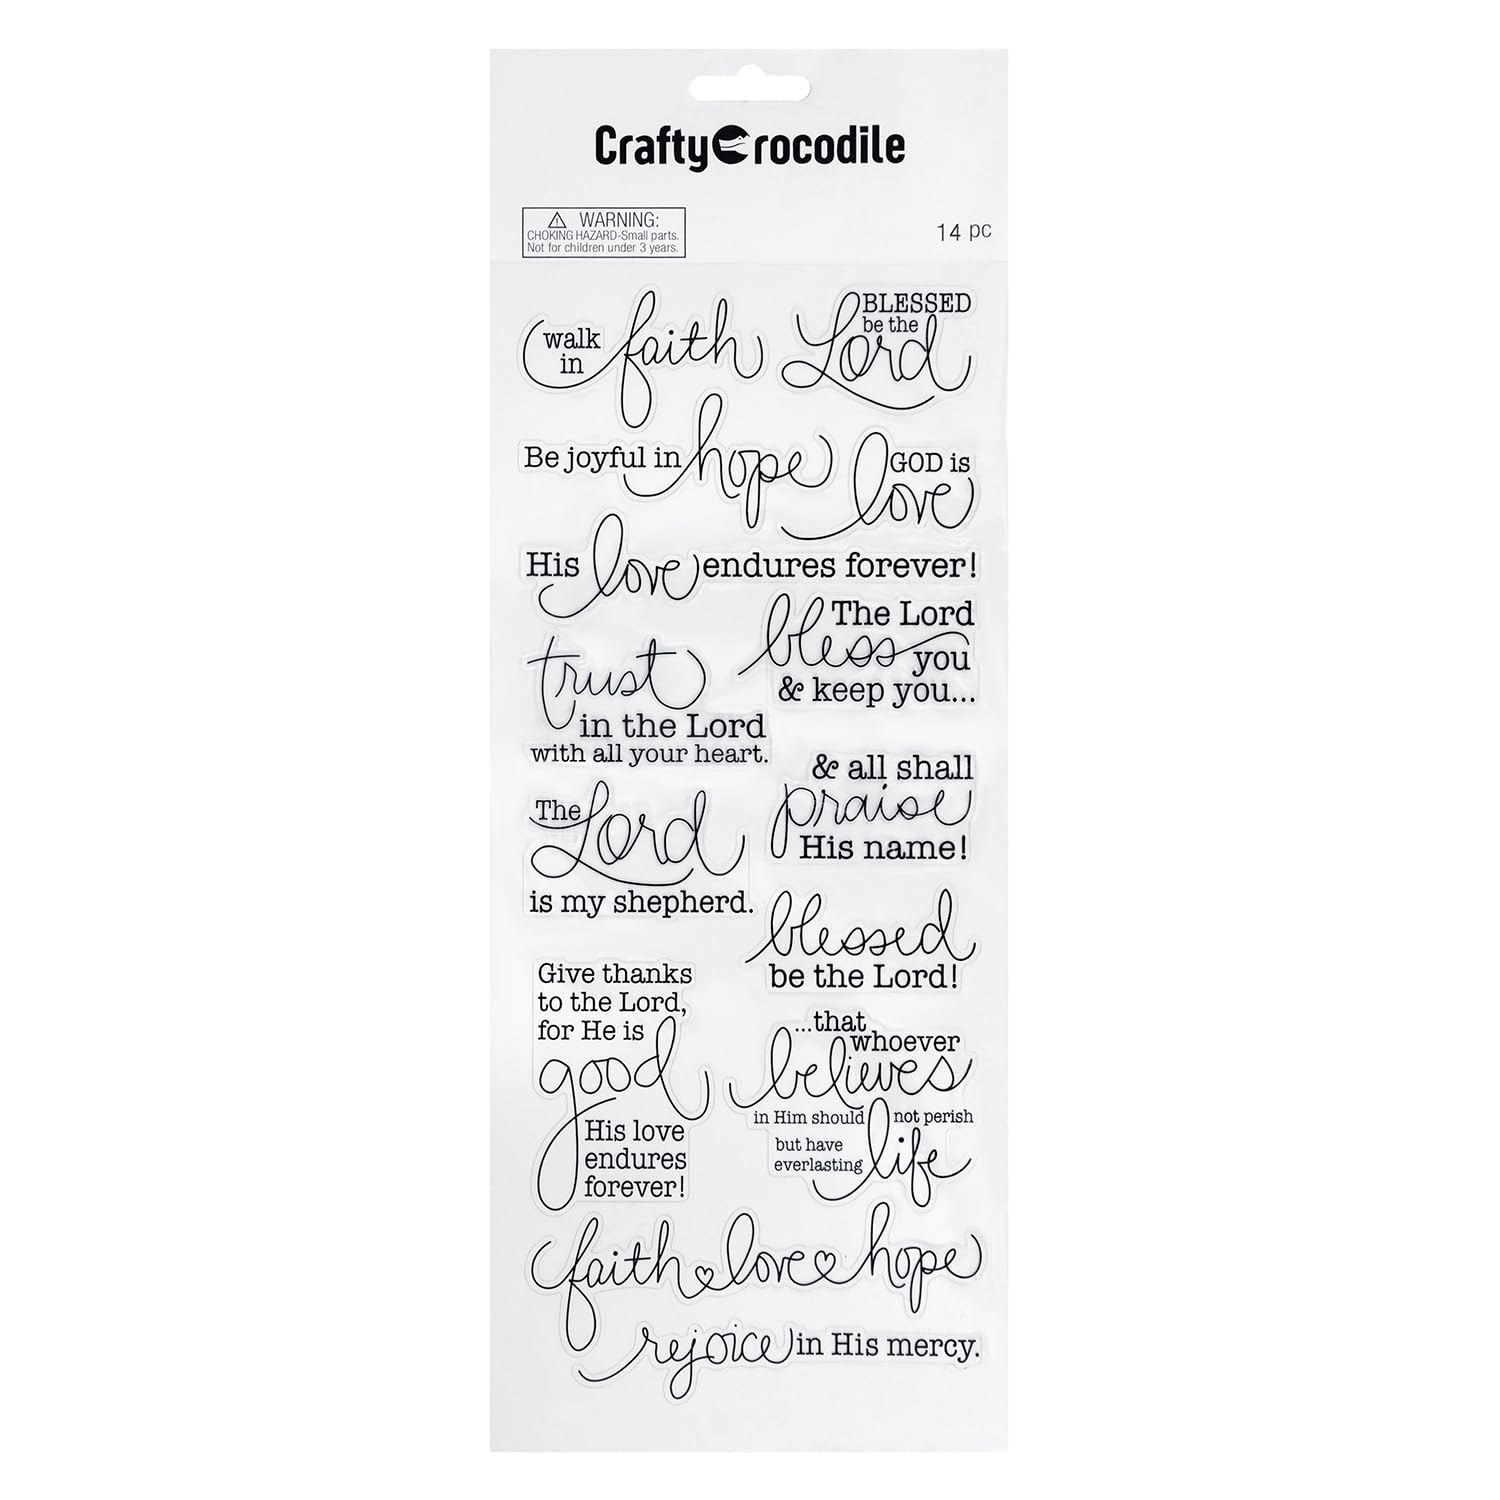 CraftyCrocodile
WARNING:
CHOKING HAZARD-Small parts.
Not for children under 3 years.
14 pc
walk
in faith
BLESSED
be the
Lord
Be joyful in hope
GOD is
love
His love endures forever!
The Lord
bless you
& keep you...
trust
in the Lord
with all your heart.
& all shall
praise
His name!
The Lord
is my shepherd.
blessed
be the Lord!
Give thanks
to the Lord,
for He is
good
His love
endures
forever!
...that
whoever
believes
in Him should not perish
but have
everlasting life
faith love hope
rejoice in His mercy.